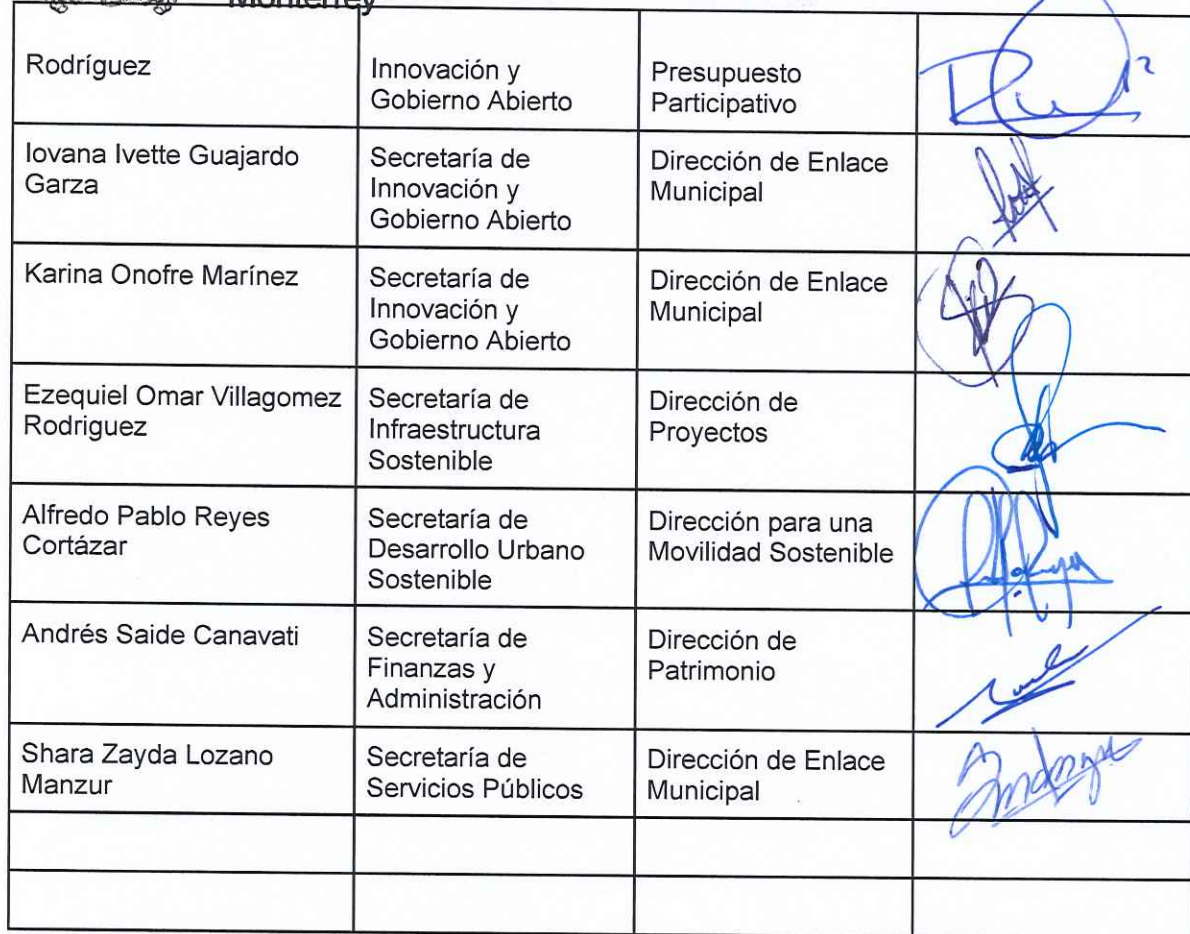 Monterrey
Rodríguez
Innovación y
Gobierno Abierto
Presupuesto
Participativo
Iovana Ivette Guajardo
Garza
Secretaría de
Innovación y
Gobierno Abierto
Dirección de Enlace
Municipal
Karina Onofre Marínez
Secretaría de
Innovación y
Gobierno Abierto
Dirección de Enlace
Municipal
Ezequiel Omar Villagomez
Rodriguez
Secretaría de
Infraestructura
Sostenible
Dirección de
Proyectos
Alfredo Pablo Reyes
Cortázar
Secretaría de
Desarrollo Urbano
Sostenible
Dirección para una
Movilidad Sostenible
Andrés Saide Canavati
Secretaría de
Finanzas y
Administración
Dirección de
Patrimonio
Shara Zayda Lozano
Manzur
Secretaría de
Servicios Públicos
Dirección de Enlace
Municipal